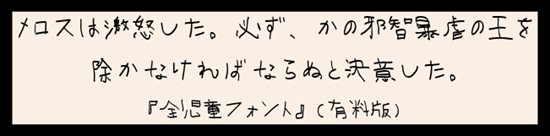 メロスは激怒した。必ず、かの邪智暴虐の王を
除かなければならぬと決意した。
『全児童フォント』(有料版)